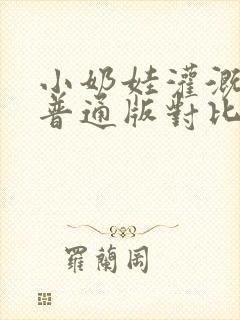 小奶娃灌溉
普通版對比
羅蘭岡